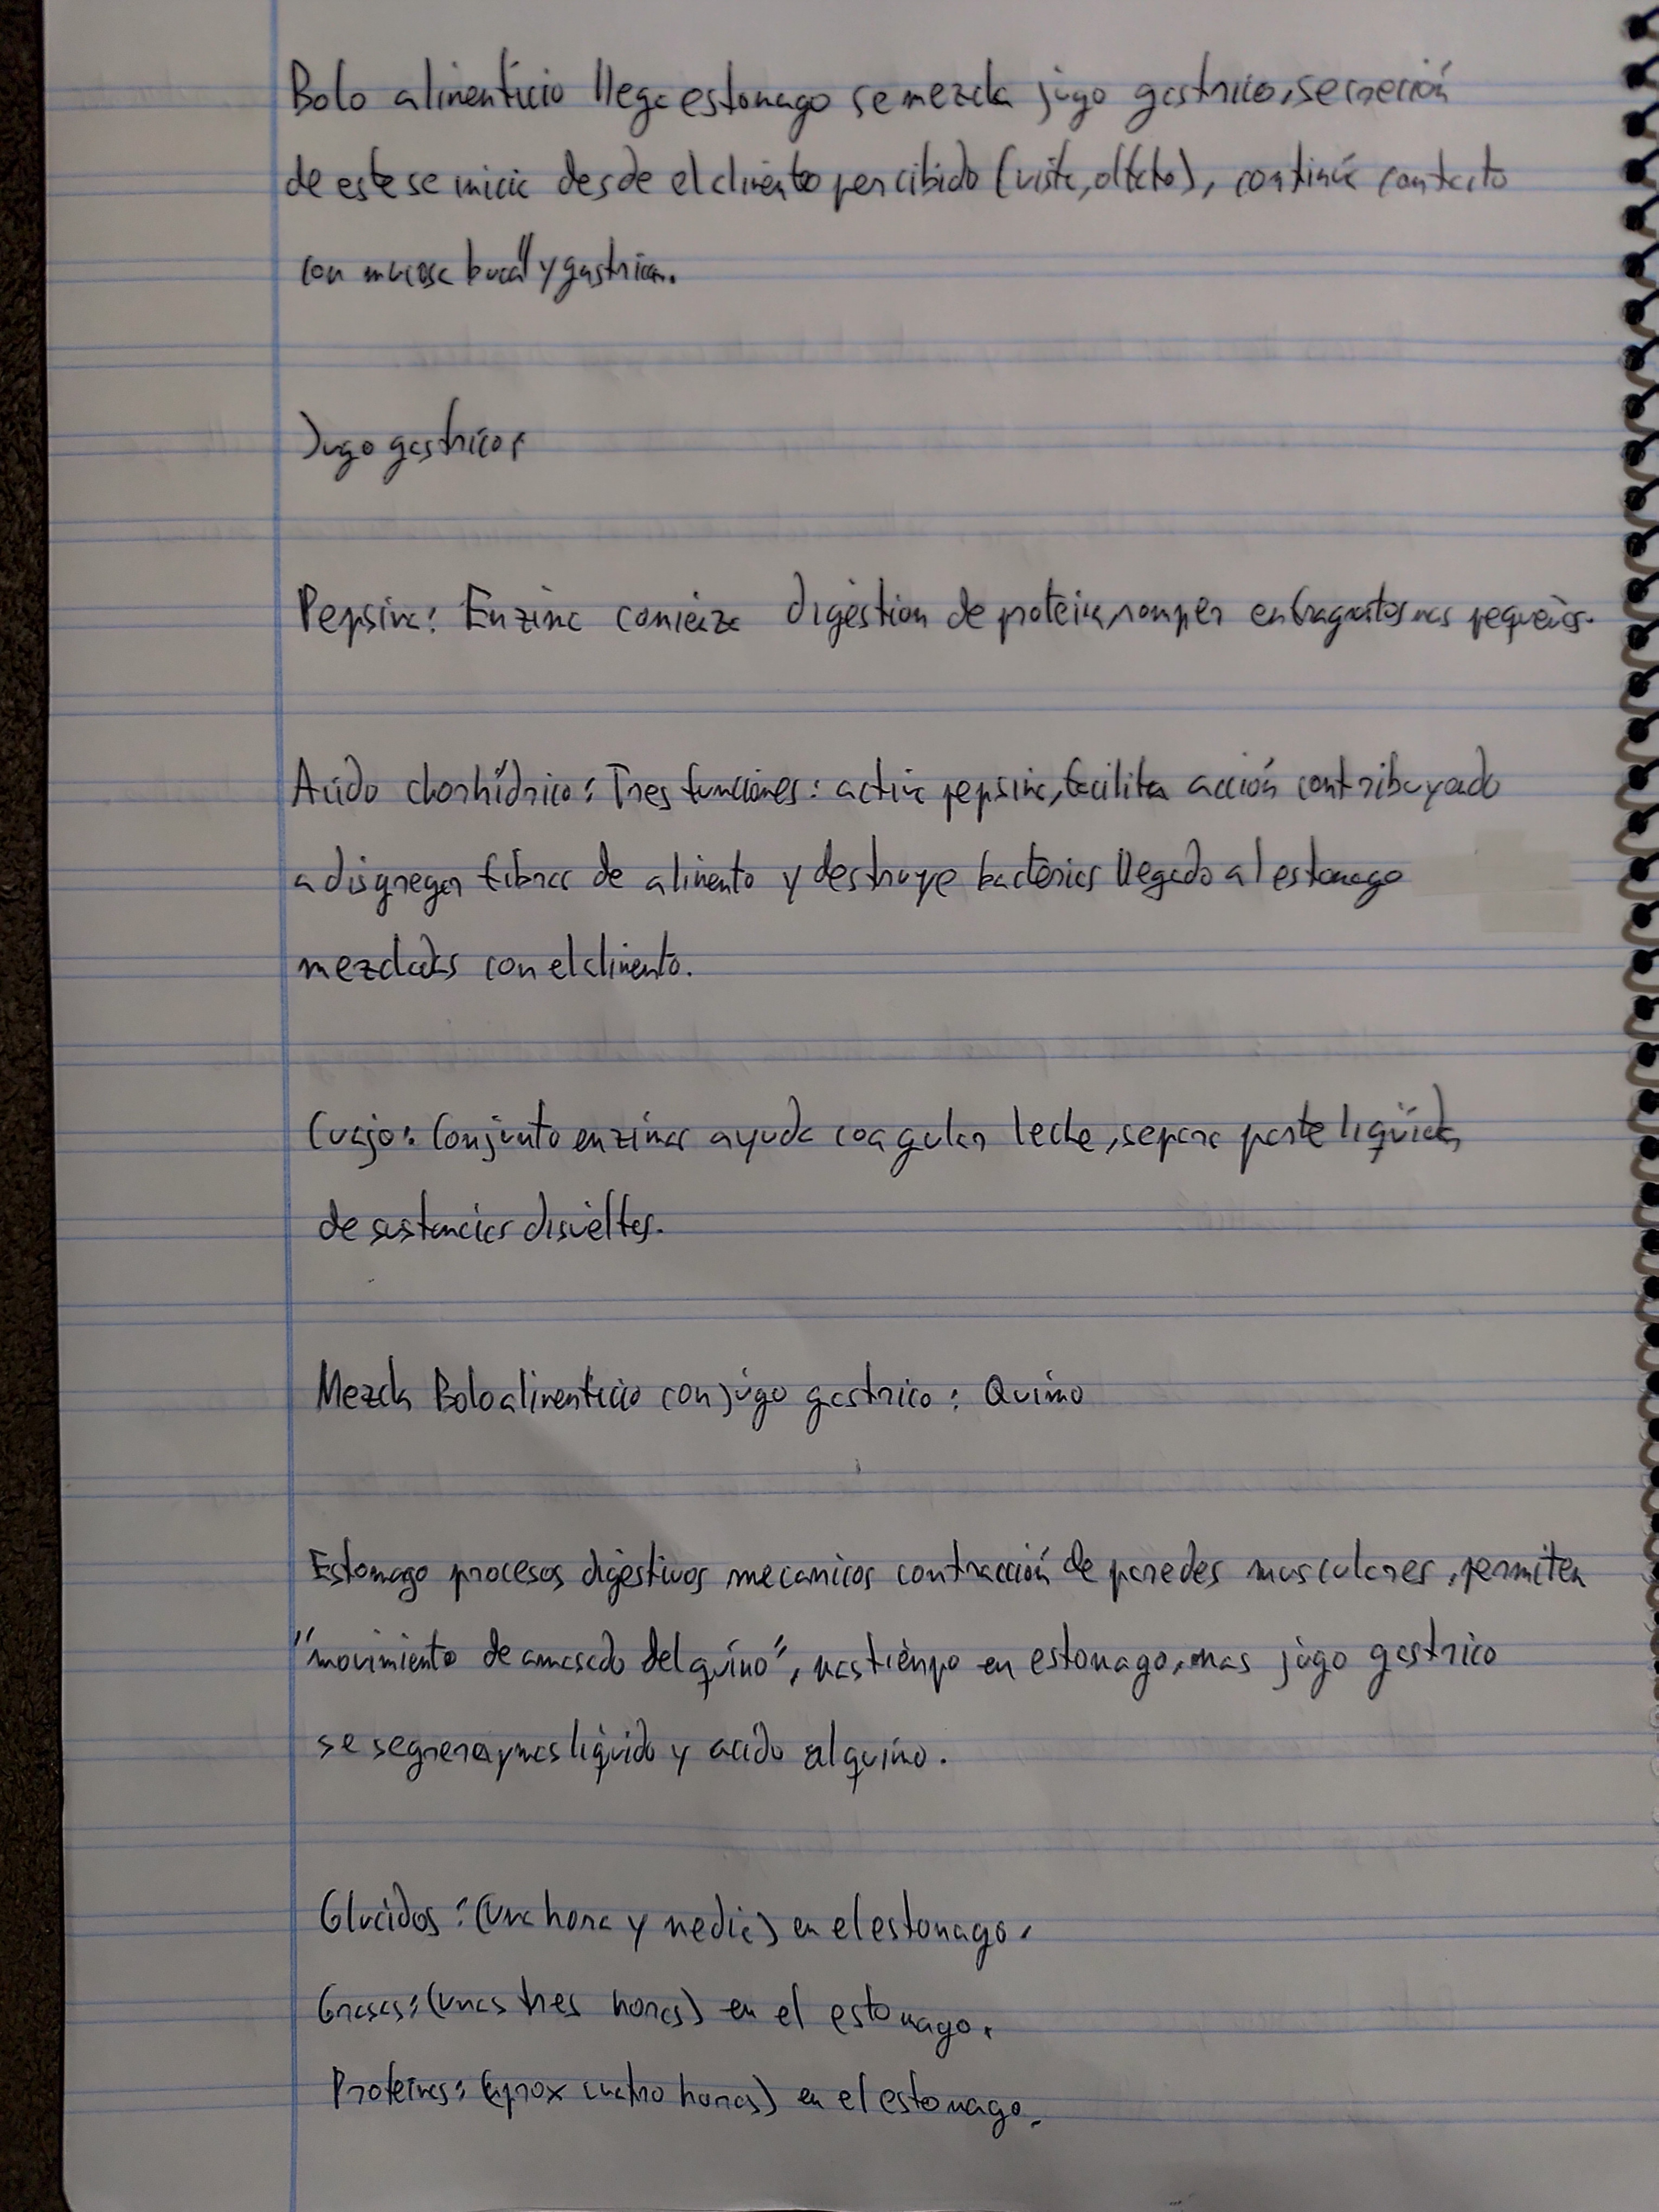 Bolo alimenticio llega estomago se mezcla jugo gastrico, secreción
de este se inicia desde el alimento percibido (vista, olfato), continúa contacto
con mucosa bucal y gastrica.
Jugo gastrico:
Pepsina: Enzima comienza digestion de proteina, romper en fragmentos mas pequeños.
Acido clorhídrico: Tres funciones: activa pepsina, facilita acción contribuyendo
a disgregar fibras de alimento y destruye bacterias llegado al estomago
mezcladas con el alimento.
Cuajo: Conjunto enzimas ayuda coagular leche, separa parte liquida
de sustancias disueltas.
Mezcla Bolo alimenticio con jugo gastrico: Quimo
Estomago procesos digestivos mecanicos contracción de paredes musculares, permiten
"movimiento de amasado del quimo", mas tiempo en estomago, mas jugo gastrico
se segrega y mas liquido y acido al quimo.
Glucidos: (Una hora y media) en el estomago.
Grasas: (unas tres horas) en el estomago.
Proteinas: (aprox cuatro horas) en el estomago.